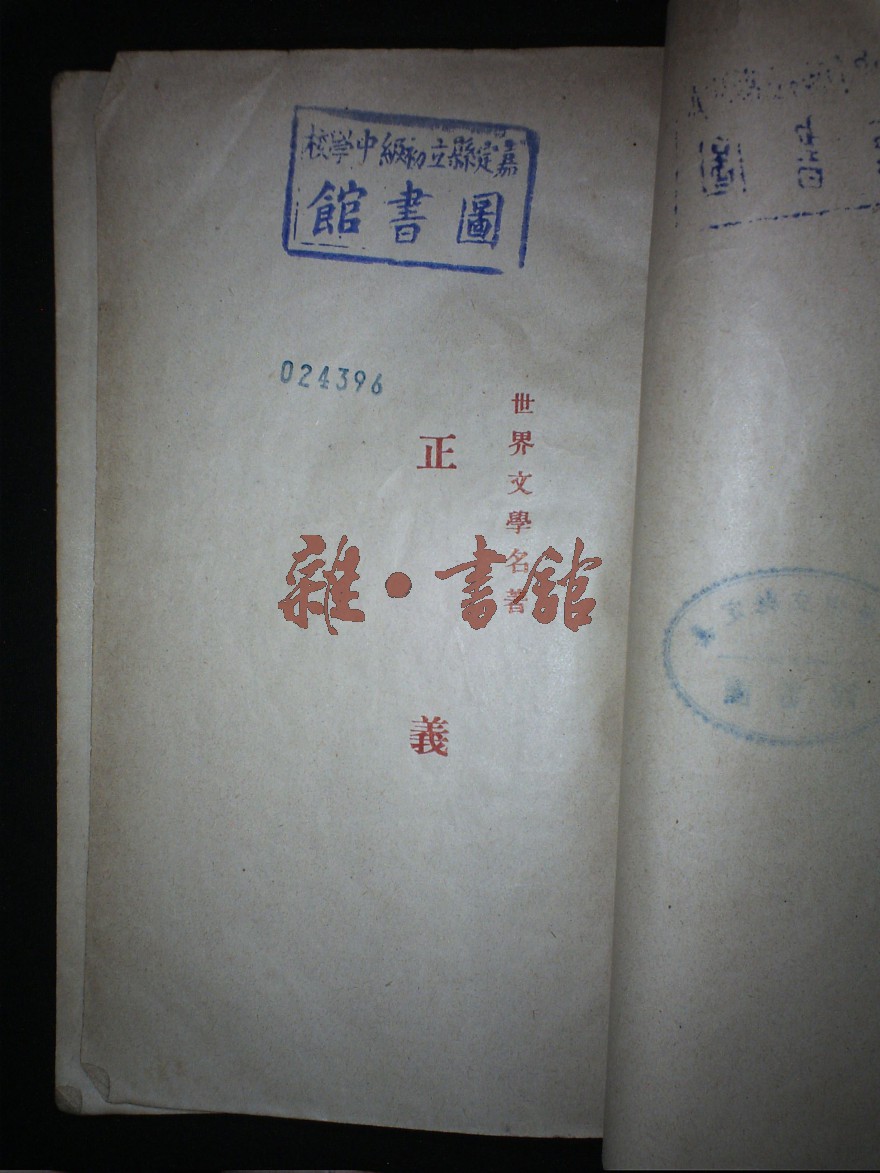 嘉定縣立初級中學校
圖書館
024396
世界文學名著
正義
雜·書館
圖書